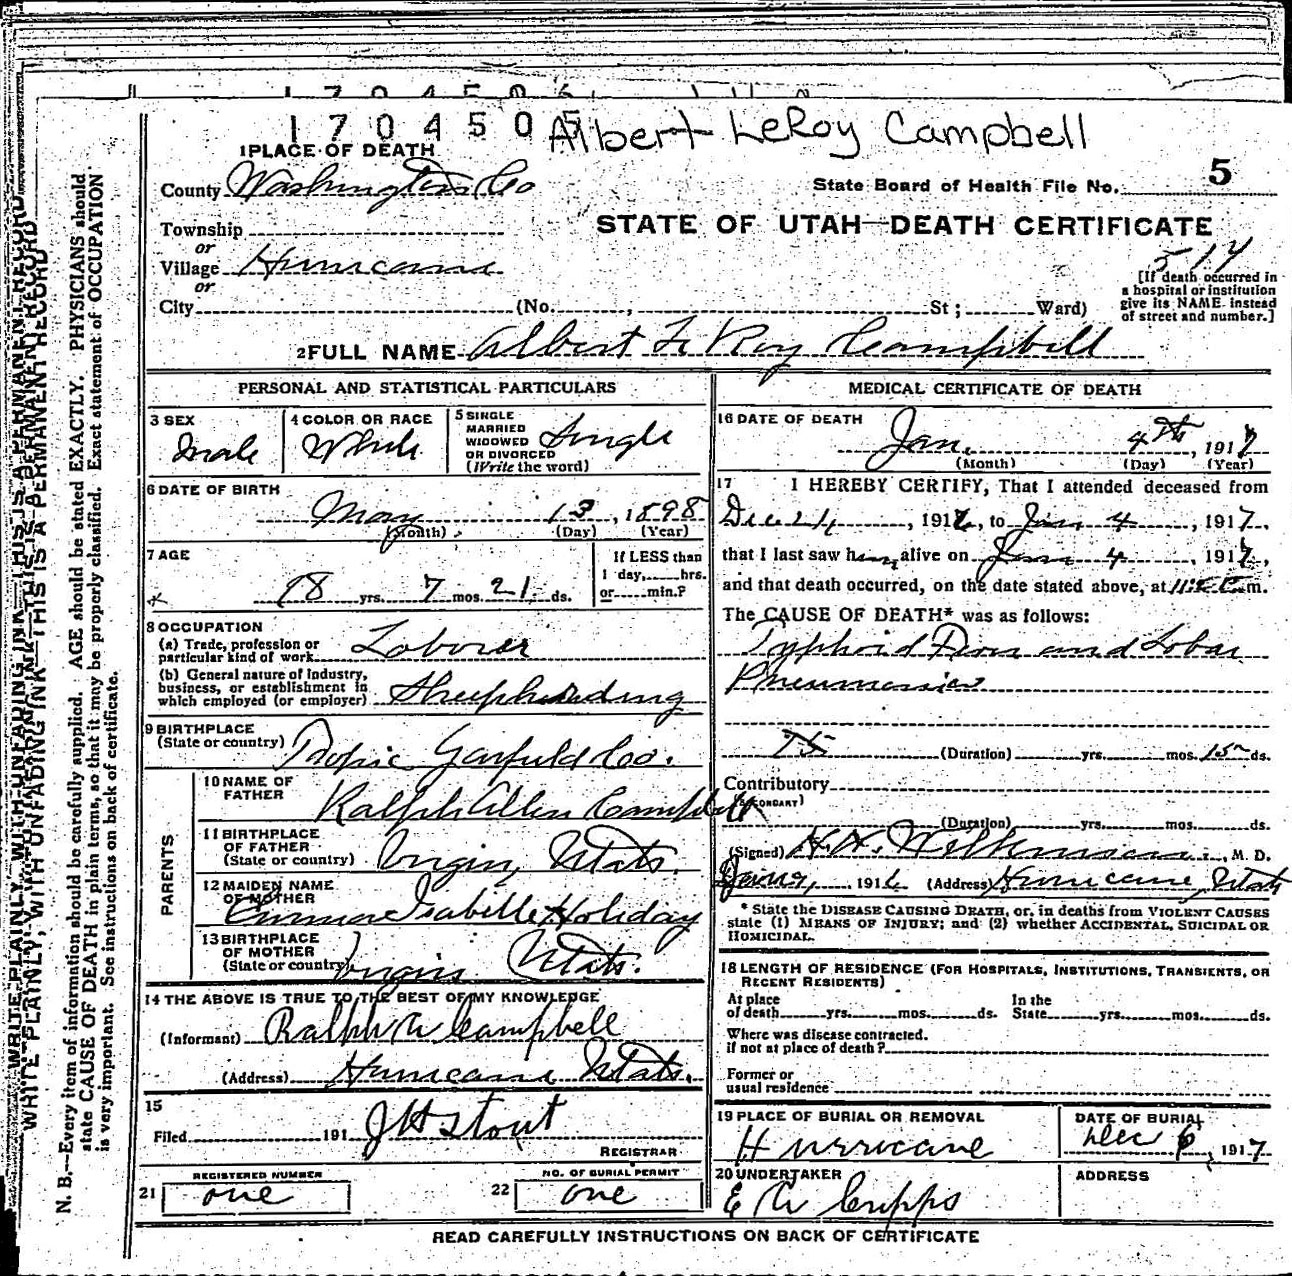 1704505
Albert LeRoy Campbell
1 PLACE OF DEATH
County Washington Co
State Board of Health File No. 5
STATE OF UTAH—DEATH CERTIFICATE
Township
or
Village Hurricane
or
City (No. , St; Ward)
[If death occurred in
a hospital or institution
give its NAME instead
of street and number.]
2 FULL NAME Albert Le Roy Campbell
PERSONAL AND STATISTICAL PARTICULARS
3 SEX
Male
4 COLOR OR RACE
White
5 SINGLE
MARRIED
WIDOWED
OR DIVORCED
(Write the word)
Single
6 DATE OF BIRTH
May 13, 1898
(Month) (Day) (Year)
7 AGE
18 yrs. 7 mos. 21 ds.
If LESS than
1 day, hrs.
or min.?
8 OCCUPATION
(a) Trade, profession or
particular kind of work Laborer
(b) General nature of industry,
business, or establishment in
which employed (or employer) Sheepherding
9 BIRTHPLACE
(State or country) Tropic Garfield Co.
PARENTS
10 NAME OF
FATHER
Ralph Allen Campbell
11 BIRTHPLACE
OF FATHER
(State or country) Virgin, Utah.
12 MAIDEN NAME
OF MOTHER
Isabelle Holiday
13 BIRTHPLACE
OF MOTHER
(State or country) Virgin Utah.
14 THE ABOVE IS TRUE TO THE BEST OF MY KNOWLEDGE
(Informant) Ralph A Campbell
(Address) Hurricane Utah.
15
Filed 191 J H Stout
REGISTRAR
REGISTERED NUMBER
21 one
NO. OF BURIAL PERMIT
22 one
MEDICAL CERTIFICATE OF DEATH
16 DATE OF DEATH
Jan. 4th, 1917
(Month) (Day) (Year)
17 I HEREBY CERTIFY, That I attended deceased from
Dec 24, 1916, to Jan 4, 1917,
that I last saw him alive on Jan 4, 1917,
and that death occurred, on the date stated above, at m.
The CAUSE OF DEATH* was as follows:
Typhoid Fever and Lobar
Pneumonia
(Duration) yrs. mos. 15 ds.
Contributory
(SECONDARY)
(Duration) yrs. mos. ds.
(Signed) Wilkinson, M. D.
191 (Address) Hurricane, Utah
* State the DISEASE CAUSING DEATH, or, in deaths from VIOLENT CAUSES
state (1) MEANS OF INJURY; and (2) whether ACCIDENTAL, SUICIDAL OR
HOMICIDAL.
18 LENGTH OF RESIDENCE (FOR HOSPITALS, INSTITUTIONS, TRANSIENTS, OR
RECENT RESIDENTS)
At place
of death yrs. mos. ds.
In the
State yrs. mos. ds.
Where was disease contracted.
if not at place of death?
Former or
usual residence
19 PLACE OF BURIAL OR REMOVAL
Hurricane
DATE OF BURIAL
Dec 6, 1917
20 UNDERTAKER
E A Cripps
ADDRESS
READ CAREFULLY INSTRUCTIONS ON BACK OF CERTIFICATE
WRITE PLAINLY, WITH UNFADING INK—THIS IS A PERMANENT RECORD
N. B.—Every item of information should be carefully supplied. AGE should be stated EXACTLY. PHYSICIANS should
state CAUSE OF DEATH in plain terms, so that it may be properly classified. Exact statement of OCCUPATION
is very important. See instructions on back of certificate.